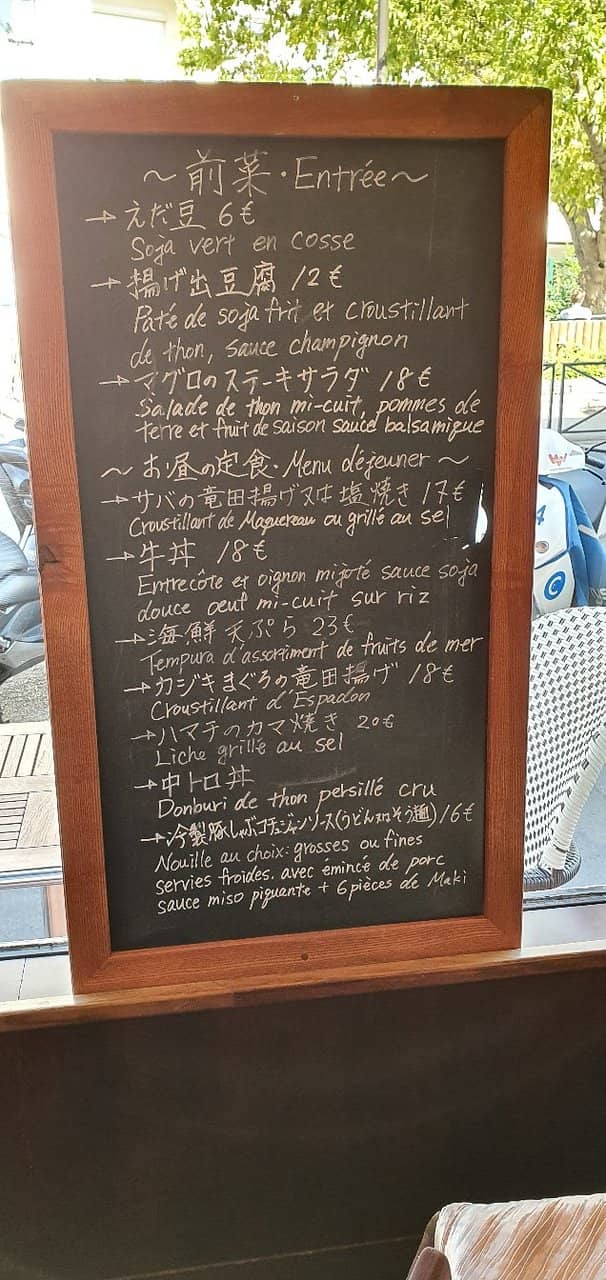 ～前菜・Entrée～
→えだ豆 6€
Soja vert en cosse
→揚げ出豆腐 12€
Pâté de soja frit et croustillant
de thon, sauce champignon
→マグロのステーキサラダ 18€
Salade de thon mi-cuit, pommes de
terre et fruit de saison sauce balsamique
～お昼の定食・Menu déjeuner～
→サバの竜田揚げ又は塩焼き 17€
Croustillant de Maquereau ou grillé au sel
→牛丼 18€
Entrecôte et oignon mijoté sauce soja
douce oeuf mi-cuit sur riz
→海鮮天ぷら 23€
Tempura d'assortiment de fruits de mer
→カジキまぐろの竜田揚げ 18€
Croustillant d'Espadon
→ハマチのカマ焼き 20€
Liche grillé au sel
→中トロ丼
Donburi de thon persillé cru
→冷製豚しゃぶコチュジャンソース(うどん又はそう麺) 16€
Nouille au choix: grosses ou fines
servies froides. avec émincé de porc
sauce miso piquante + 6 pièces de Maki